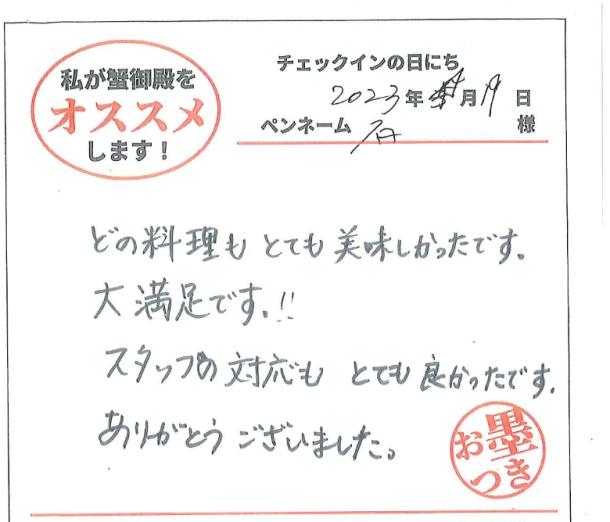 私が蟹御殿を
オススメ
します！
チェックインの日にち
2023年 月19日
ペンネーム 様
どの料理もとても美味しかったです。
大満足です。!!
スタッフの対応もとても良かったです。
ありがとうございました。
お墨
つき